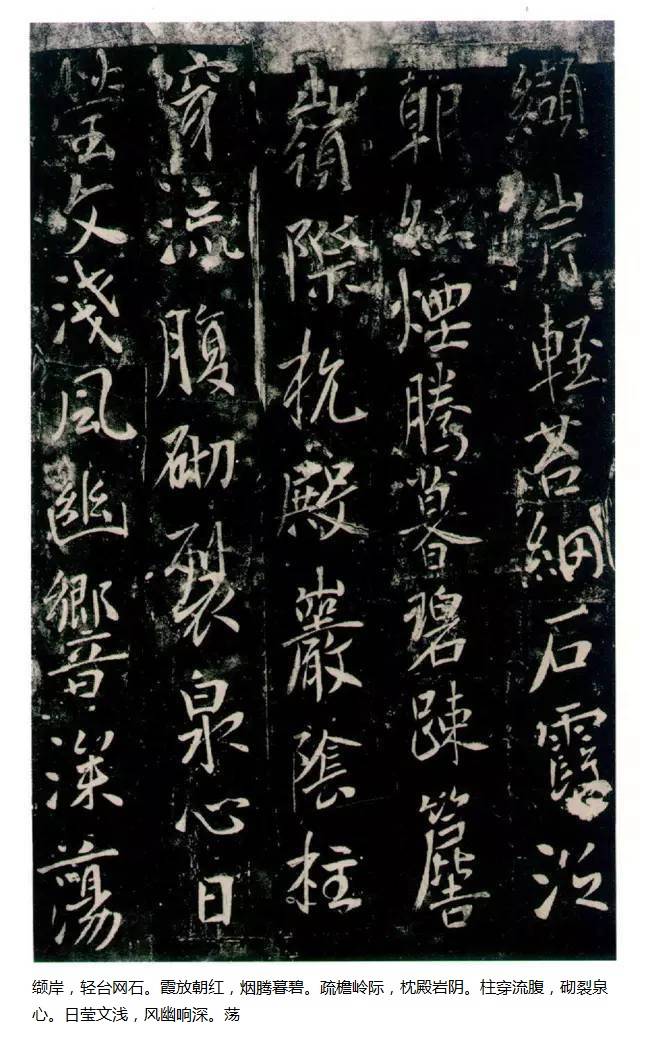 纈岸輕苔網石霞泛
朝紅煙騰暮碧疎簷
嶺際枕殿巖陰柱
穿流腹砌裂泉心日
瑩文淺風幽響深蕩
缬岸，轻台网石。霞放朝红，烟腾暮碧。疏檐岭际，枕殿岩阴。柱穿流腹，砌裂泉
心。日莹文浅，风幽响深。荡